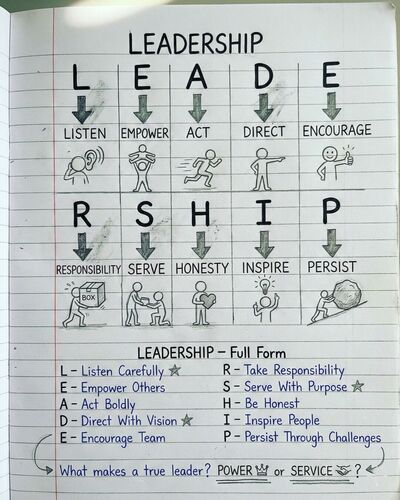 LEADERSHIP
L E A D E
LISTEN EMPOWER ACT DIRECT ENCOURAGE
R S H I P
RESPONSIBILITY SERVE HONESTY INSPIRE PERSIST
BOX
LEADERSHIP – Full Form
L – Listen Carefully
E – Empower Others
A – Act Boldly
D – Direct With Vision
E – Encourage Team
R – Take Responsibility
S – Serve With Purpose
H – Be Honest
I – Inspire People
P – Persist Through Challenges
What makes a true leader? POWER or SERVICE ?